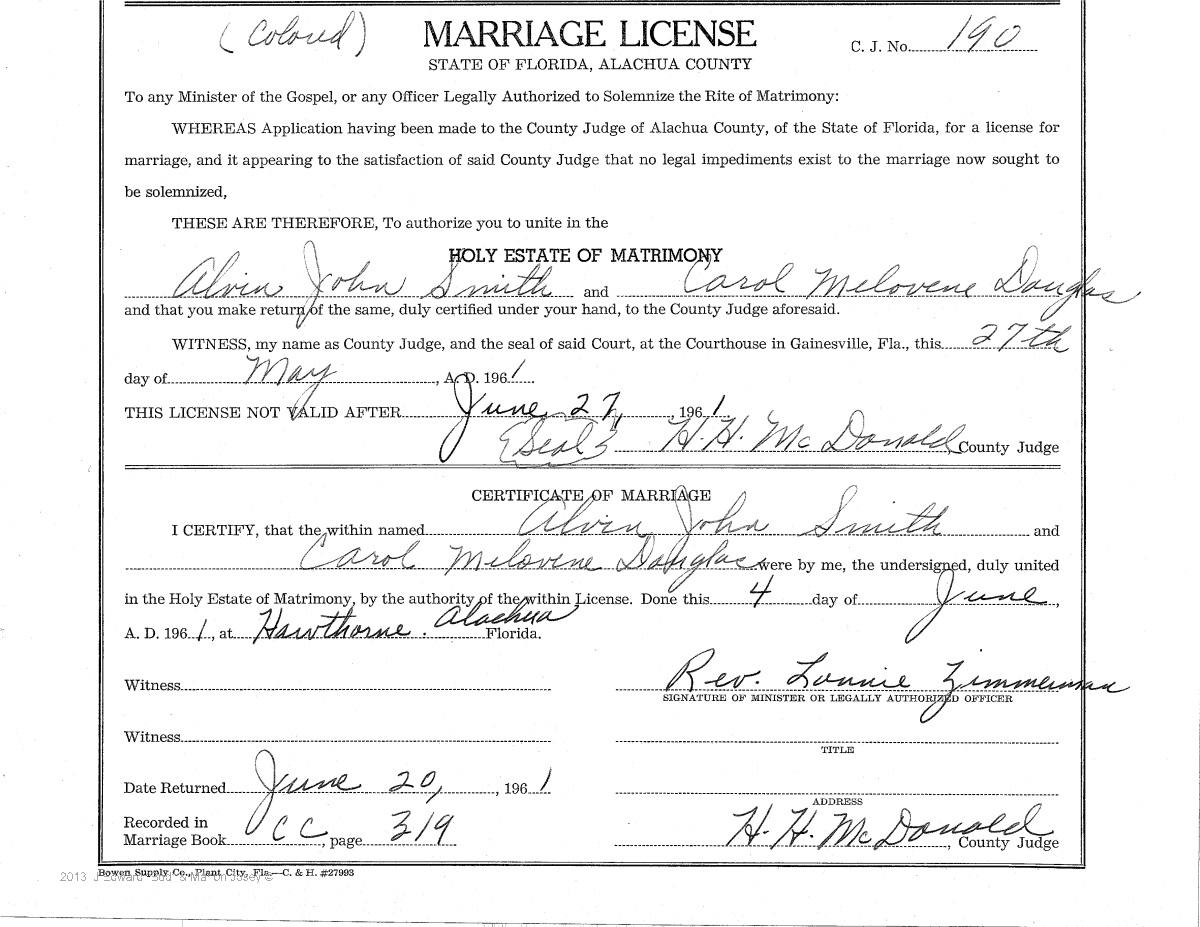 (Colored) MARRIAGE LICENSE C. J. No. 190
STATE OF FLORIDA, ALACHUA COUNTY
To any Minister of the Gospel, or any Officer Legally Authorized to Solemnize the Rite of Matrimony:
WHEREAS Application having been made to the County Judge of Alachua County, of the State of Florida, for a license for
marriage, and it appearing to the satisfaction of said County Judge that no legal impediments exist to the marriage now sought to
be solemnized,
THESE ARE THEREFORE, To authorize you to unite in the
HOLY ESTATE OF MATRIMONY
Alvin John Smith and Carol Melovene Douglas
and that you make return of the same, duly certified under your hand, to the County Judge aforesaid.
WITNESS, my name as County Judge, and the seal of said Court, at the Courthouse in Gainesville, Fla., this 27th
day of May, A. D. 1961
THIS LICENSE NOT VALID AFTER June 27, 1961.
{Seal} H. H. McDonald, County Judge
CERTIFICATE OF MARRIAGE
I CERTIFY, that the within named Alvin John Smith and
Carol Melovene Douglas were by me, the undersigned, duly united
in the Holy Estate of Matrimony, by the authority of the within License. Done this 4 day of June,
A. D. 1961, at Hawthorne. Alachua Florida.
Witness Rev. Lonnie Zimmerman
SIGNATURE OF MINISTER OR LEGALLY AUTHORIZED OFFICER
Witness
TITLE
Date Returned June 20, 1961
ADDRESS
Recorded in
Marriage Book CC, page 319 H. H. McDonald, County Judge
Bowen Supply Co., Plant City, Fla.—C. & H. #27993
2013 J Edward